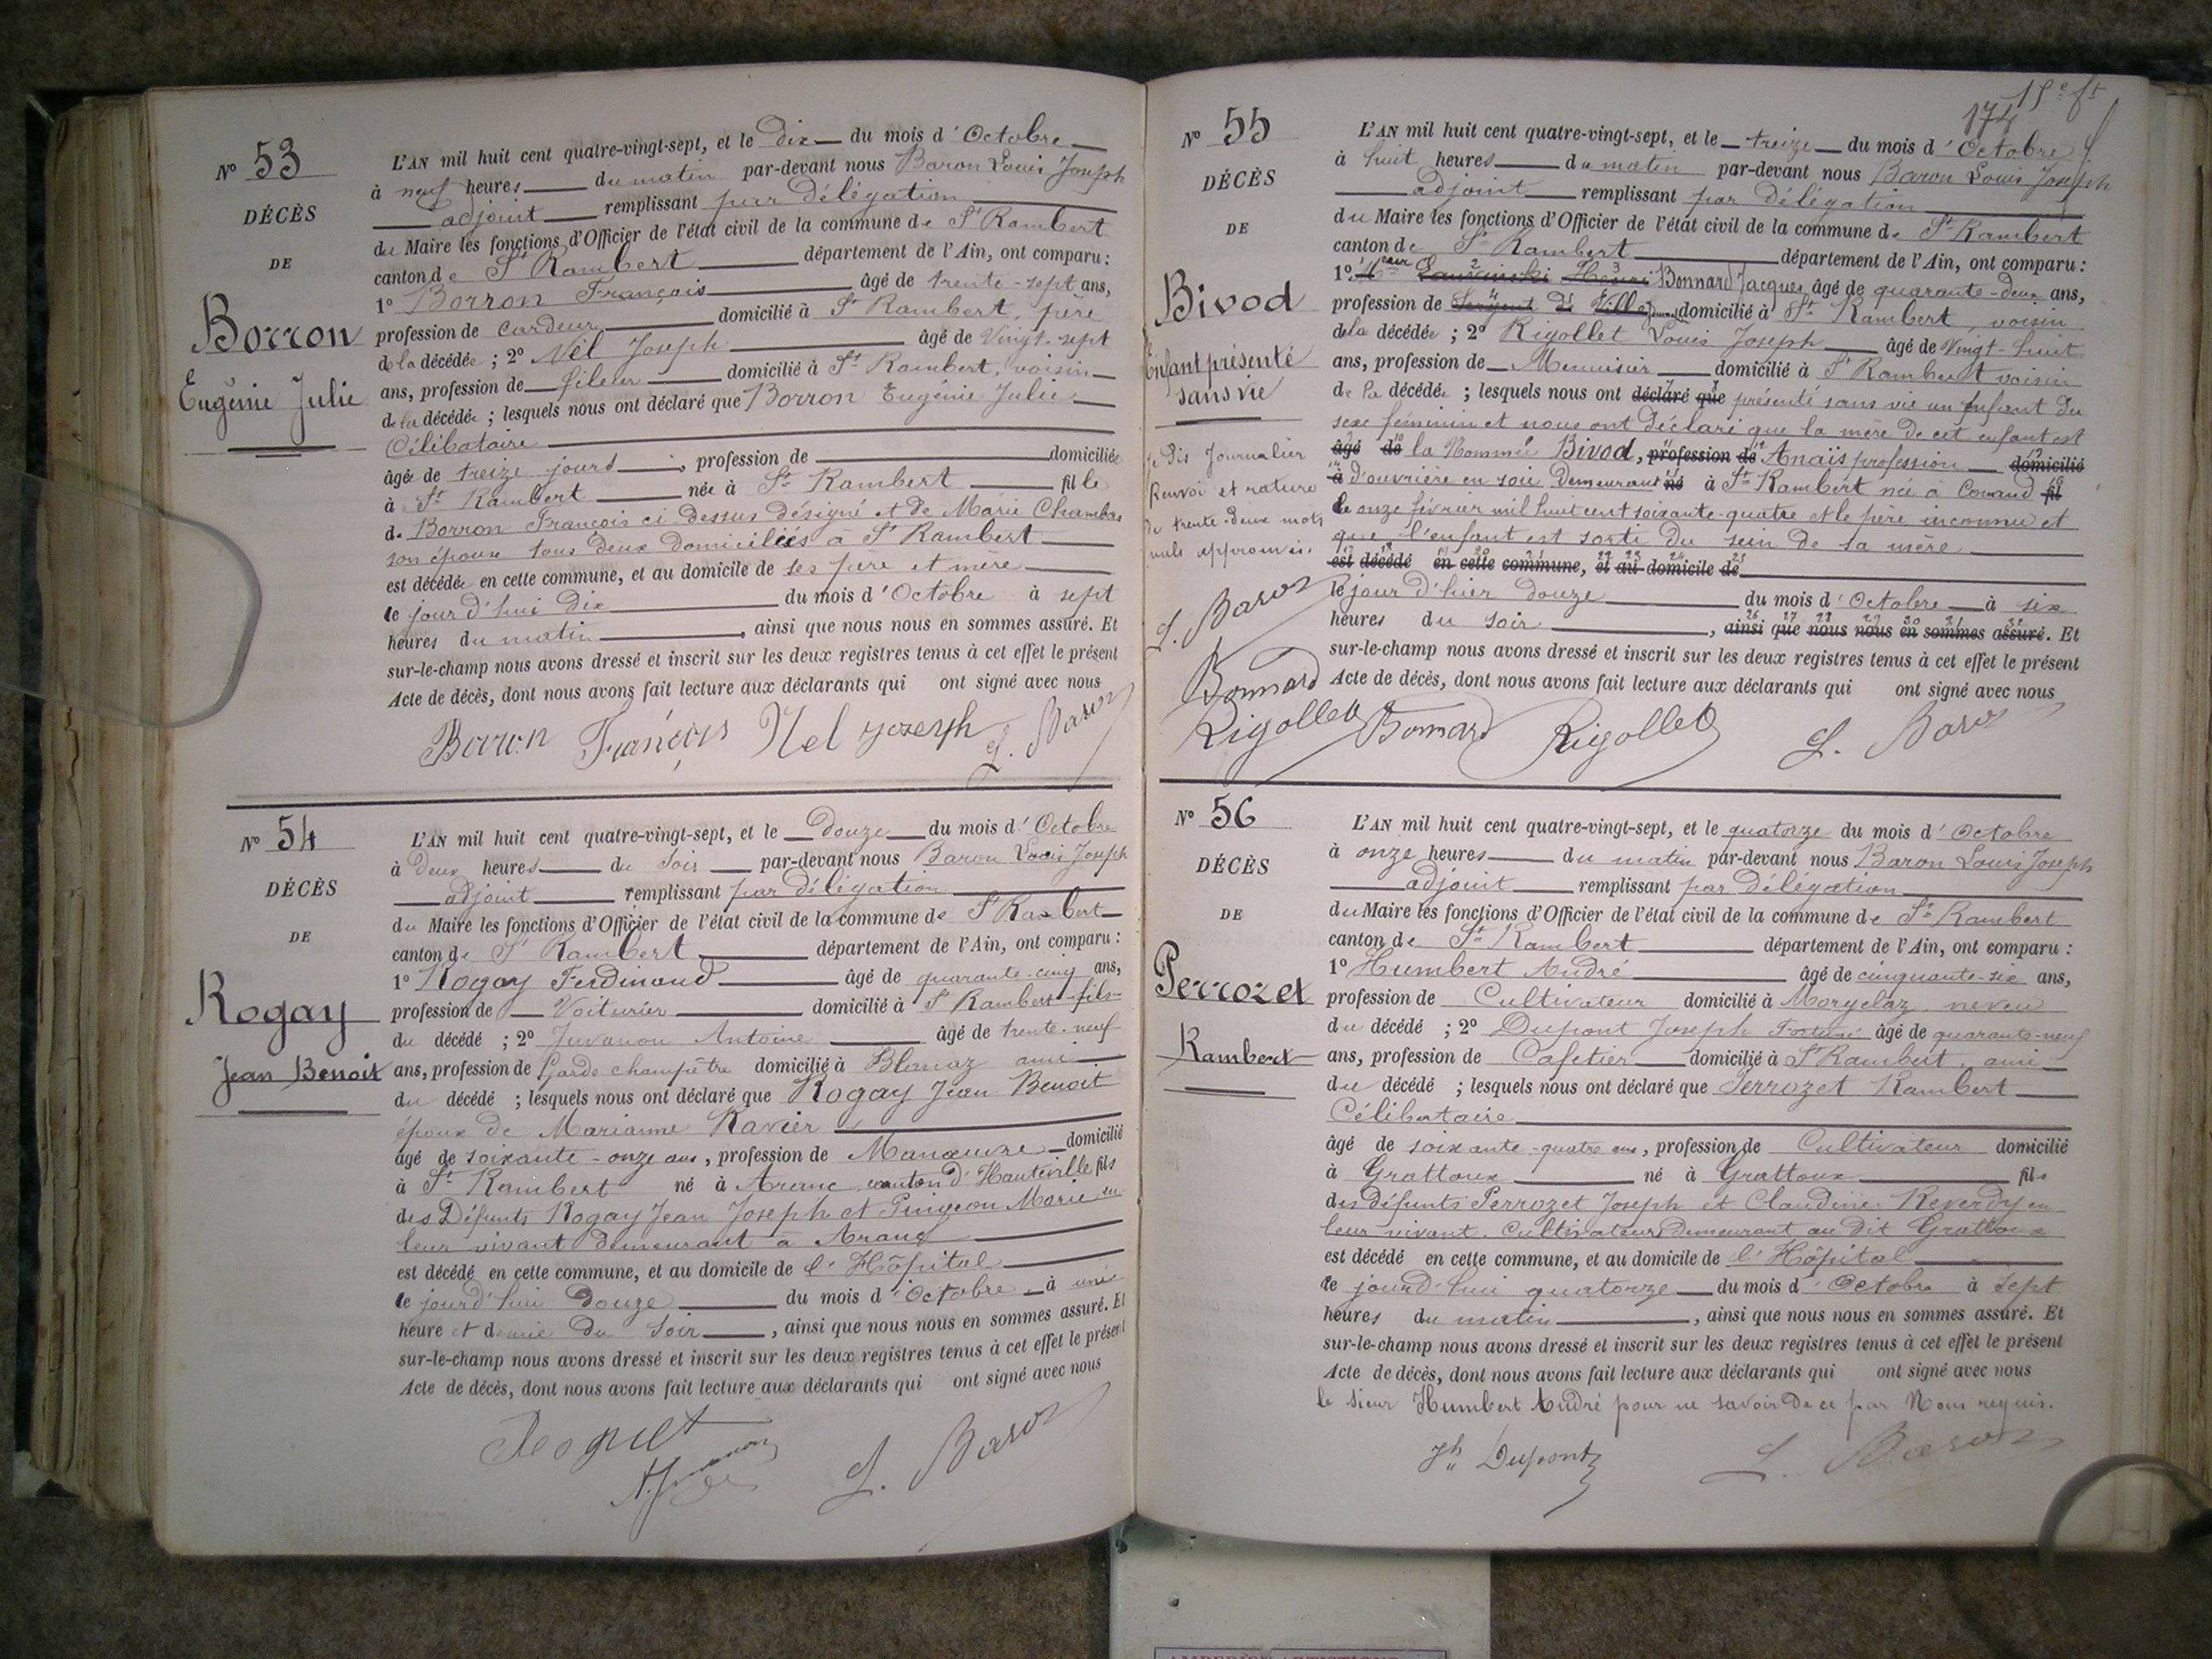 Nº 53
DÉCÈS
DE
Borron
Eugénie Julie
L'AN mil huit cent quatre-vingt-sept, et le dix du mois d'Octobre
à neuf heures du matin par-devant nous Baron Louis Joseph
adjoint remplissant par délégation
du Maire les fonctions d'Officier de l'état civil de la commune de St Rambert
canton de St Rambert département de l'Ain, ont comparu :
1º Borron François âgé de trente-sept ans,
profession de cardeur domicilié à St Rambert, père
de la décédée ; 2º Nèl Joseph âgé de Vingt-sept
ans, profession de fileur domicilié à St Rambert, voisin
de la décédée ; lesquels nous ont déclaré que Borron Eugénie Julie
Célibataire
âgée de treize jours, profession de domiciliée
à St Rambert née à St Rambert fille
de Borron François ci dessus désigné et de Marie Chambas
son épouse tous deux domiciliés à St Rambert
est décédée en cette commune, et au domicile de ses père et mère
le jourd'hui dix du mois d'Octobre à sept
heures du matin, ainsi que nous nous en sommes assuré. Et
sur-le-champ nous avons dressé et inscrit sur les deux registres tenus à cet effet le présent
Acte de décès, dont nous avons fait lecture aux déclarants qui ont signé avec nous
Borron François Nel Joseph L. Baron
Nº 54
DÉCÈS
DE
Rogay
Jean Benoit
L'AN mil huit cent quatre-vingt-sept, et le Douze du mois d'Octobre
à Deux heures du Soir par-devant nous Baron Louis Joseph
adjoint remplissant par délégation
du Maire les fonctions d'Officier de l'état civil de la commune de St Rambert
canton de St Rambert département de l'Ain, ont comparu :
1º Rogay Ferdinand âgé de quarante-cinq ans,
profession de Voiturier domicilié à St Rambert fils
du décédé ; 2º Juvanon Antoine âgé de trente-neuf
ans, profession de Garde champêtre domicilié à Blanaz ami
du décédé ; lesquels nous ont déclaré que Rogay Jean Benoit
époux de Marianne Ravier
âgé de soixante-onze ans, profession de Manœuvre domicilié
à St Rambert né à Aranc canton d'Hauteville fils
des Défunts Rogay Jean Joseph et Pingeon Marie en
leur vivant demeurant à Aranc
est décédé en cette commune, et au domicile de l'Hôpital
le jourd'hui douze du mois d'Octobre à une
heure et demie du soir, ainsi que nous nous en sommes assuré. Et
sur-le-champ nous avons dressé et inscrit sur les deux registres tenus à cet effet le présent
Acte de décès, dont nous avons fait lecture aux déclarants qui ont signé avec nous
L. Baron
174
15e ft
Nº 55
DÉCÈS
DE
Bivod
Enfant présenté
sans vie
je dis Journalier
Renvoi et rature
de trente-deux mots
nuls approuvés.
L. Baron
Bonnard
Rigollet
L'AN mil huit cent quatre-vingt-sept, et le treize du mois d'Octobre
à huit heures du matin par-devant nous Baron Louis Joseph
adjoint remplissant par délégation
du Maire les fonctions d'Officier de l'état civil de la commune de St Rambert
canton de St Rambert département de l'Ain, ont comparu :
1º Henri Bonnard Jacques âgé de quarante-deux ans,
profession de Sergent de Ville domicilié à St Rambert, voisin
de la décédée ; 2º Rigollet Louis Joseph âgé de Vingt-huit
ans, profession de Menuisier domicilié à St Rambert voisin
de la décédée ; lesquels nous ont déclaré que présenté sans vie un Enfant du
sexe féminin et nous ont déclaré que la mère de cet enfant est
âgé de la Nommée Bivod, profession de Anaïs profession domicilié
à d'ouvrière en soie Demeurant né à St Rambert née à Conand fil
le onze février mil huit cent soixante-quatre et le père inconnu et
que l'enfant est sorti du sein de sa mère
est décédé en cette commune, et au domicile de
le jour d'hier douze du mois d'Octobre à six
heures du soir, ainsi que nous nous en sommes assuré. Et
sur-le-champ nous avons dressé et inscrit sur les deux registres tenus à cet effet le présent
Acte de décès, dont nous avons fait lecture aux déclarants qui ont signé avec nous
Bonnard Rigollet L. Baron
Nº 56
DÉCÈS
DE
Perrozet
Rambert
L'AN mil huit cent quatre-vingt-sept, et le quatorze du mois d'Octobre
à onze heures du matin par-devant nous Baron Louis Joseph
adjoint remplissant par délégation
du Maire les fonctions d'Officier de l'état civil de la commune de St Rambert
canton de St Rambert département de l'Ain, ont comparu :
1º Humbert André âgé de cinquante-six ans,
profession de Cultivateur domicilié à Morgelaz neveu
du décédé ; 2º Dupont Joseph Fortuné âgé de quarante-neuf
ans, profession de Cafetier domicilié à St Rambert, ami
du décédé ; lesquels nous ont déclaré que Perrozet Rambert
Célibataire
âgé de soixante-quatre ans, profession de Cultivateur domicilié
à Grattoux né à Grattoux fils
des défunts Perrozet Joseph et Claudine Reverdy en
leur vivant Cultivateurs Demeurant au dit Grattoux
est décédé en cette commune, et au domicile de l'Hôpital
le jourd'hui quatorze du mois d'Octobre à Sept
heures du matin, ainsi que nous nous en sommes assuré. Et
sur-le-champ nous avons dressé et inscrit sur les deux registres tenus à cet effet le présent
Acte de décès, dont nous avons fait lecture aux déclarants qui ont signé avec nous
le Sieur Humbert André pour ne savoir De ce par Nous requis.
Jh Dupont L. Baron